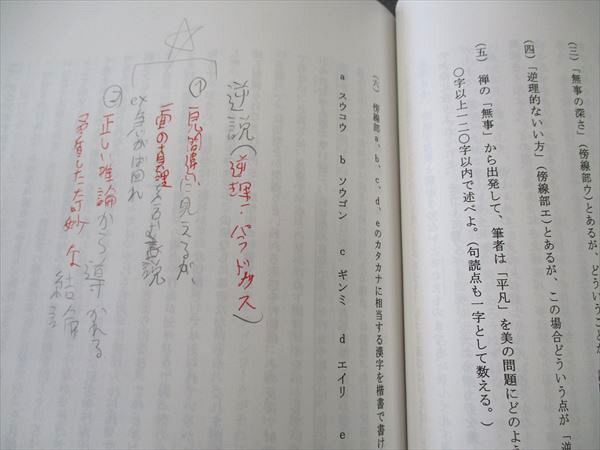 (三)「無事の深さ」(傍線部ウ)とあるが、どういうことか
(四)「逆理的ないい方」(傍線部エ)とあるが、この場合どういう点が「逆
(五) 禅の「無事」から出発して、筆者は「平凡」を美の問題にどのよう
〇字以上一二〇字以内で述べよ。(句読点も一字として数える。)
(六) 傍線部a、b、c、d、eのカタカナに相当する漢字を楷書で書け
a スウコウ b ソウゴン c ギンミ d エイリ e
逆説(逆理・パラドックス)
① 一見間違いに見えるが、
一面の真理
ex 急がば回れ
② 正しい推論から導かれる
矛盾した奇妙な結論